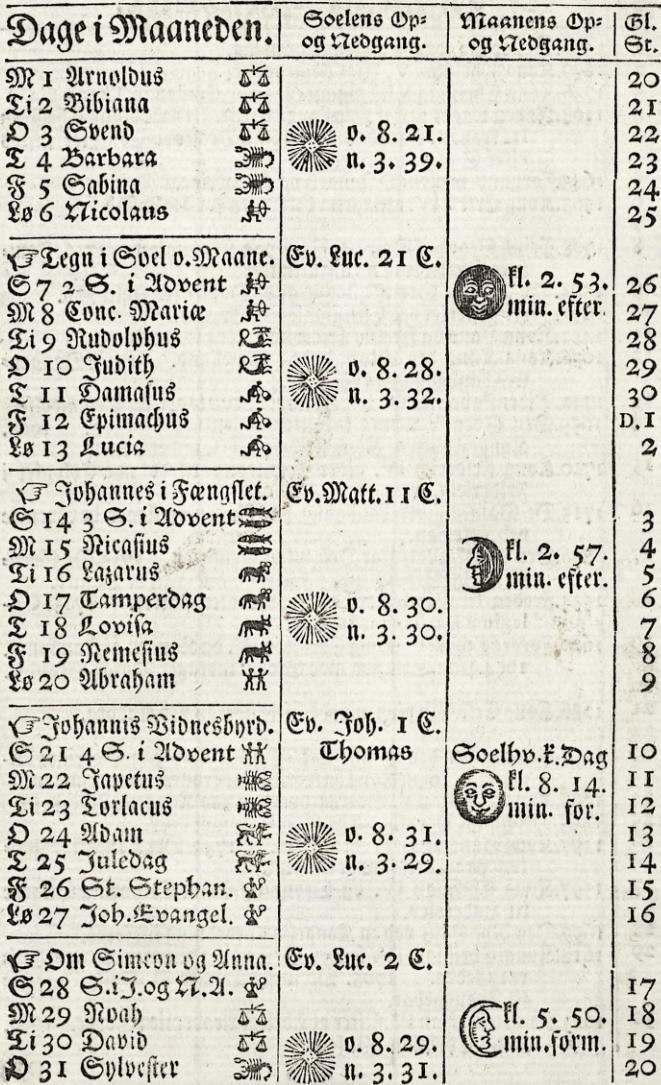 Dage i Maaneden. Soelens Op= Maanens Op= Gl.
og Nedgang. og Nedgang. St.
M 1 Arnoldus 20
Ti 2 Bibiana 21
O 3 Svend o. 8. 21. 22
T 4 Barbara n. 3. 39. 23
F 5 Sabina 24
Lø 6 Nicolaus 25
☞ Tegn i Soel o. Maane. Ev. Luc. 21 C.
S 7 2 S. i Advent kl. 2. 53. 26
M 8 Conc. Mariæ min. efter. 27
Ti 9 Rudolphus 28
O 10 Judith o. 8. 28. 29
T 11 Damasus n. 3. 32. 30
F 12 Epimachus D. 1
Lø 13 Lucia 2
☞ Johannes i Fængslet. Ev. Matt. 11 C.
S 14 3 S. i Advent 3
M 15 Nicasius kl. 2. 57. 4
Ti 16 Lazarus min. efter. 5
O 17 Tamperdag o. 8. 30. 6
T 18 Lovisa n. 3. 30. 7
F 19 Nemesius 8
Lø 20 Abraham 9
☞ Johannis Vidnesbyrd. Ev. Joh. 1 C.
S 21 4 S. i Advent Thomas Soelhv. k. Dag 10
M 22 Japetus kl. 8. 14. 11
Ti 23 Torlacus min. for. 12
O 24 Adam o. 8. 31. 13
T 25 Juledag n. 3. 29. 14
F 26 St. Stephan. 15
Lø 27 Joh. Evangel. 16
☞ Om Simeon og Anna. Ev. Luc. 2 C.
S 28 S. i J. og N. A. 17
M 29 Noah kl. 5. 50. 18
Ti 30 David o. 8. 29. min. form. 19
O 31 Sylvester n. 3. 31. 20